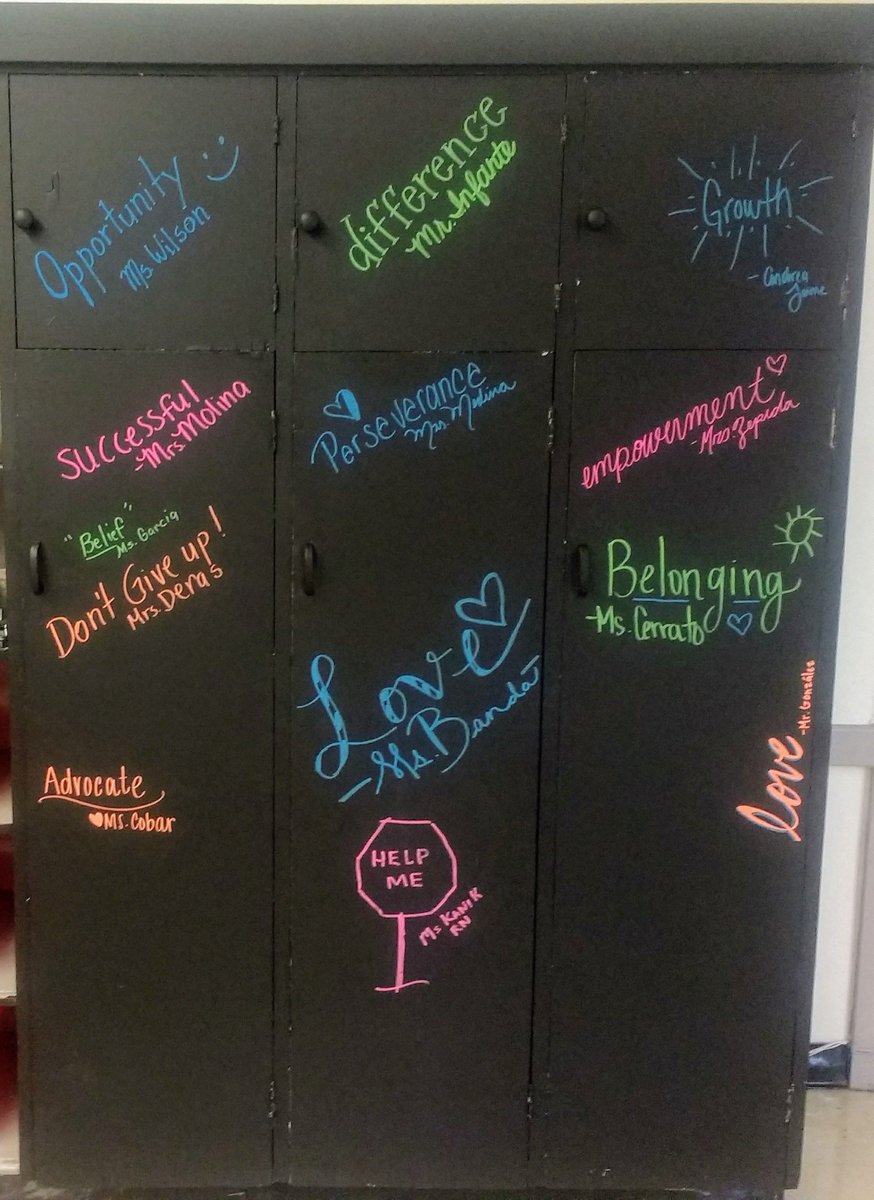 Opportunity
Ms. Wilson
difference
Mr. Infante
Growth
- Andrea
Jaime
Successful
-Mrs. Molina
Perseverance
Mrs. Medina
empowerment
-Mrs. Zepeda
"Belief"
Ms. Garcia
Don't Give up!
Mrs. Deras
Belonging
-Ms. Cerrato
Love
-Ms. Banda-
love
-Mr. González
Advocate
Ms. Cobar
HELP
ME
Ms KANIK
RN